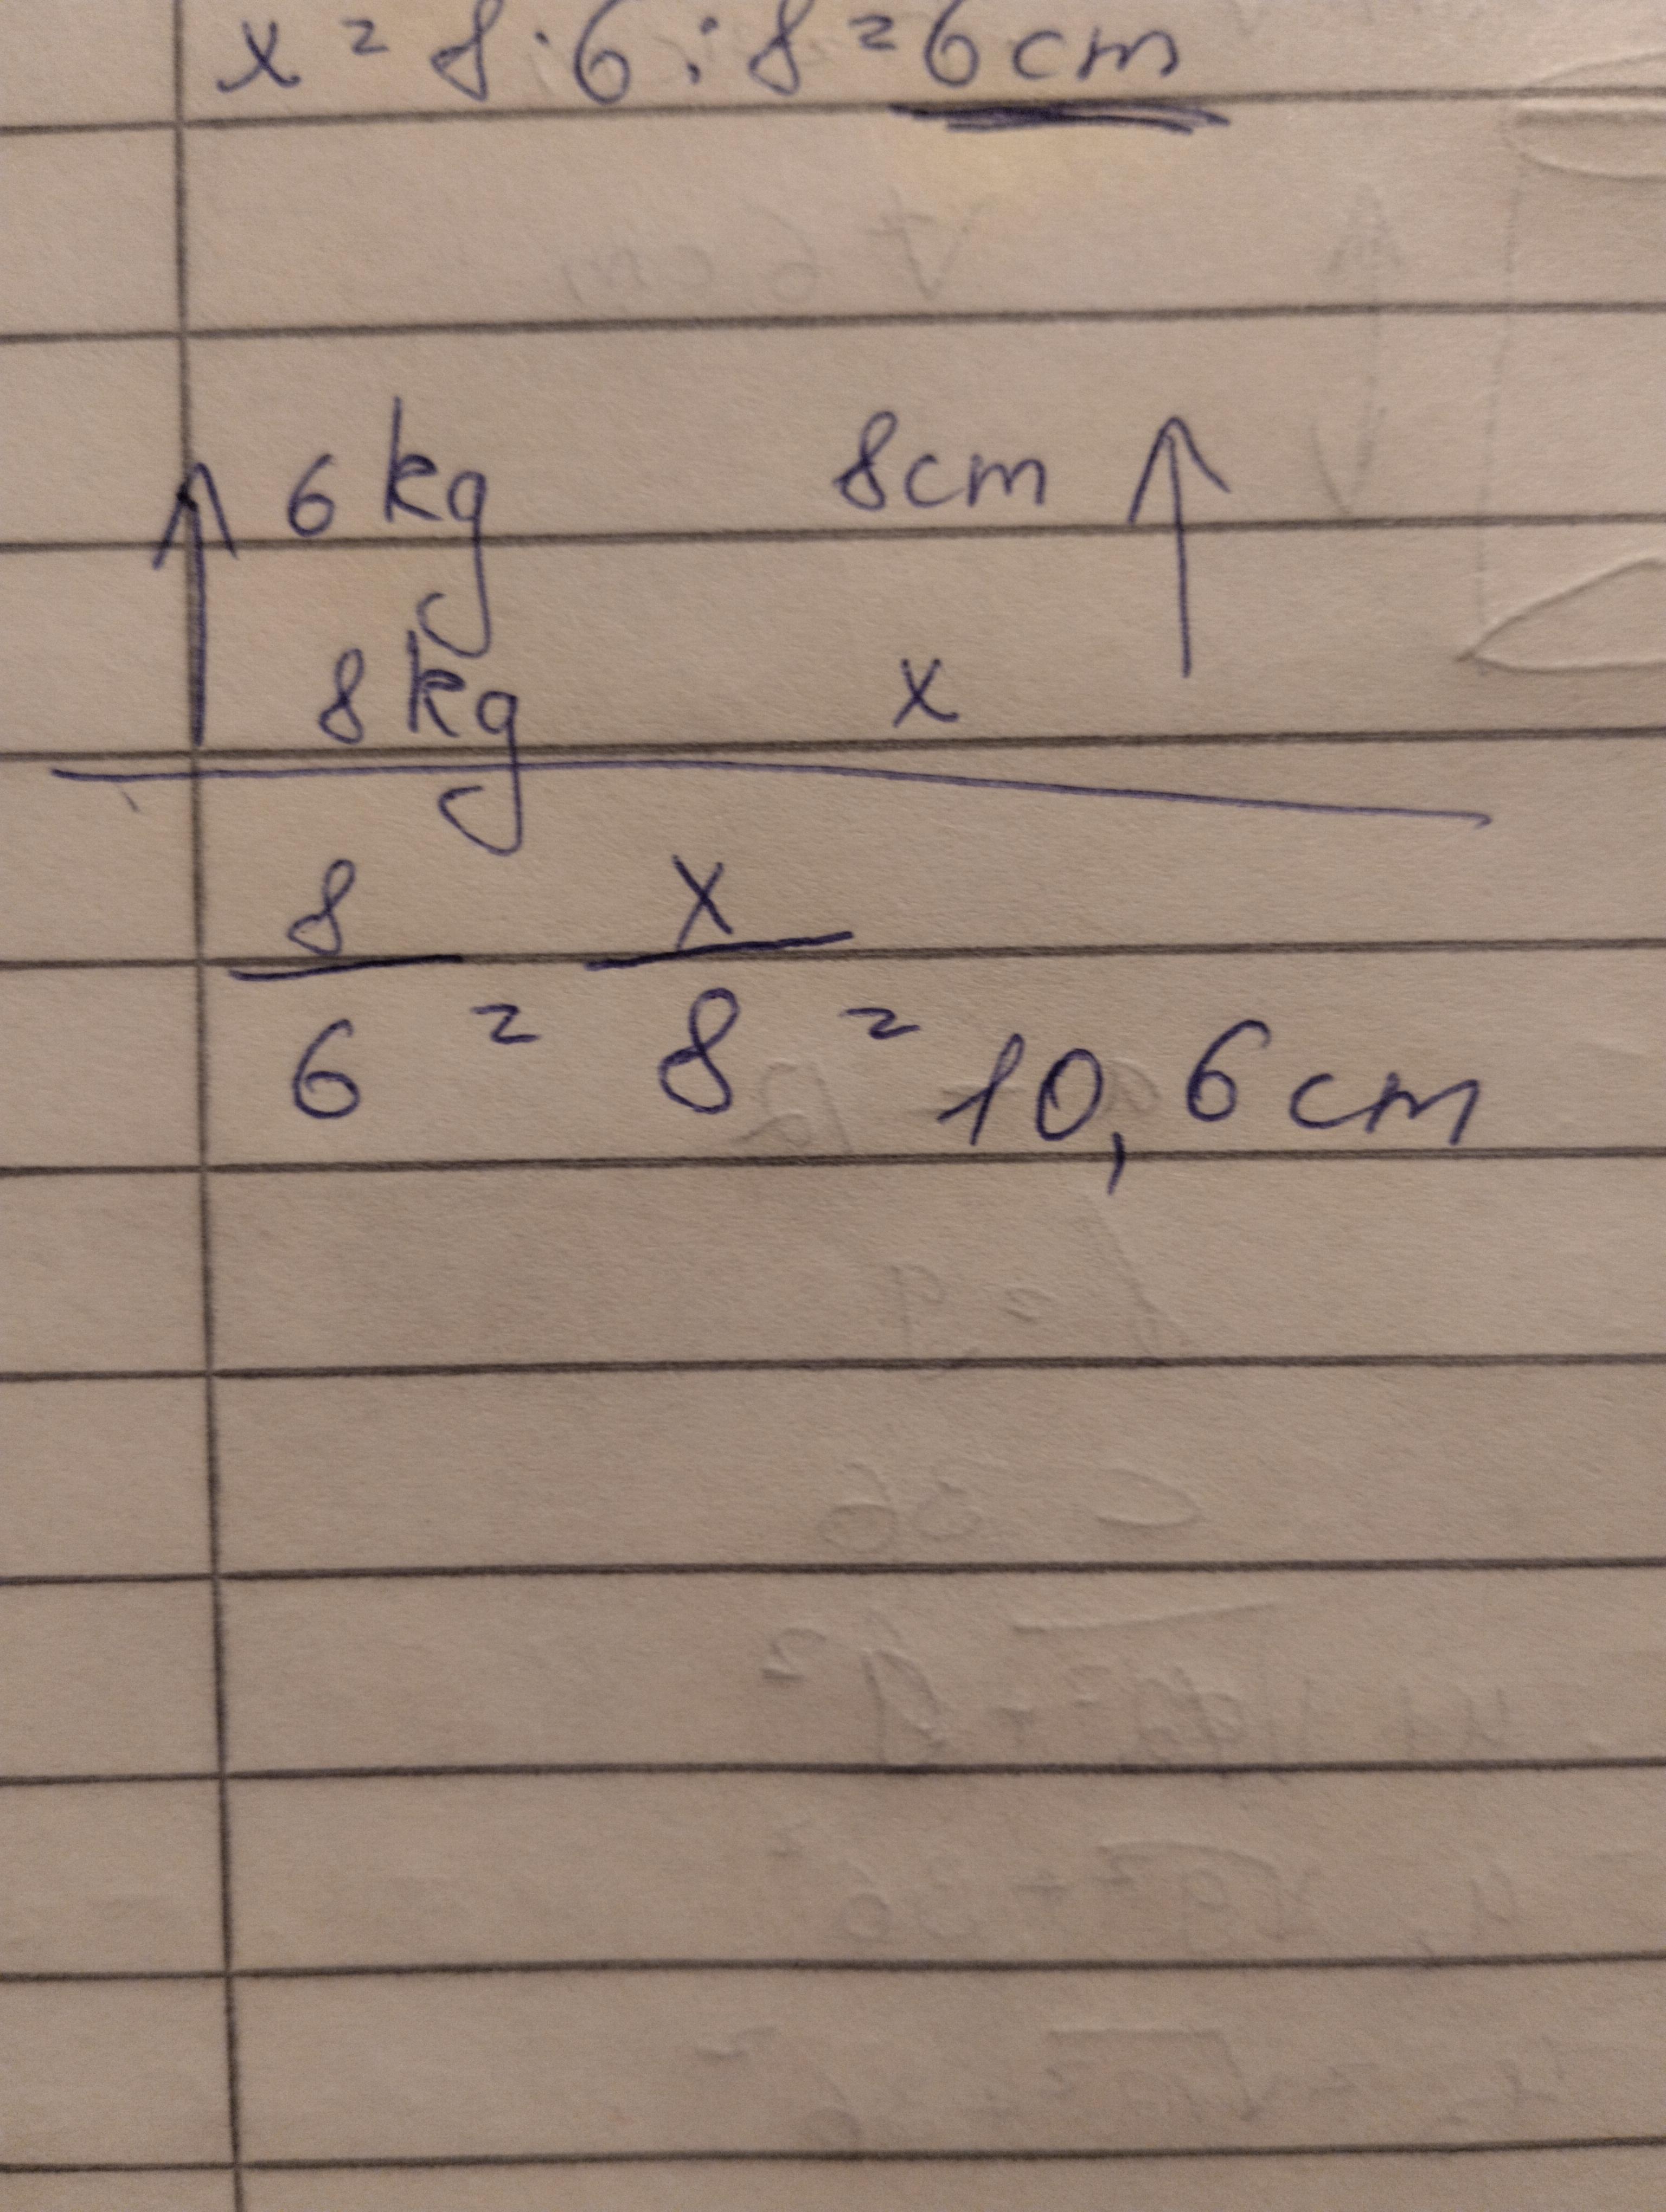 x = 8 · 6 : 8 = 6 cm
↑ 6 kg 8 cm ↑
8 kg x
8 x
6 = 8 = 10,6 cm